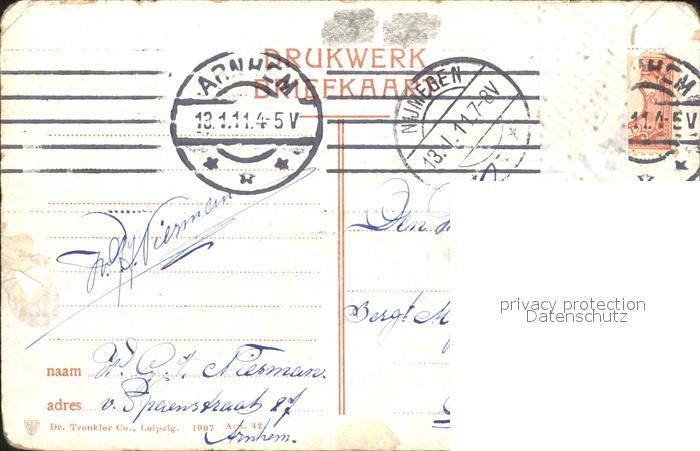 DRUKWERK
BRIEFKAART
ARNHEM
13.1.11.4-5 V
NIJMEGEN
13.1.11.7-8V
HEM
11.4-5V
Den
privacy protection
Datenschutz
Bergt M
naam W. G. J. Nierman.
adres v. Spaenstraat 27
Arnhem.
Dr. Trenkler Co., Leipzig. 1907 Arn. 42